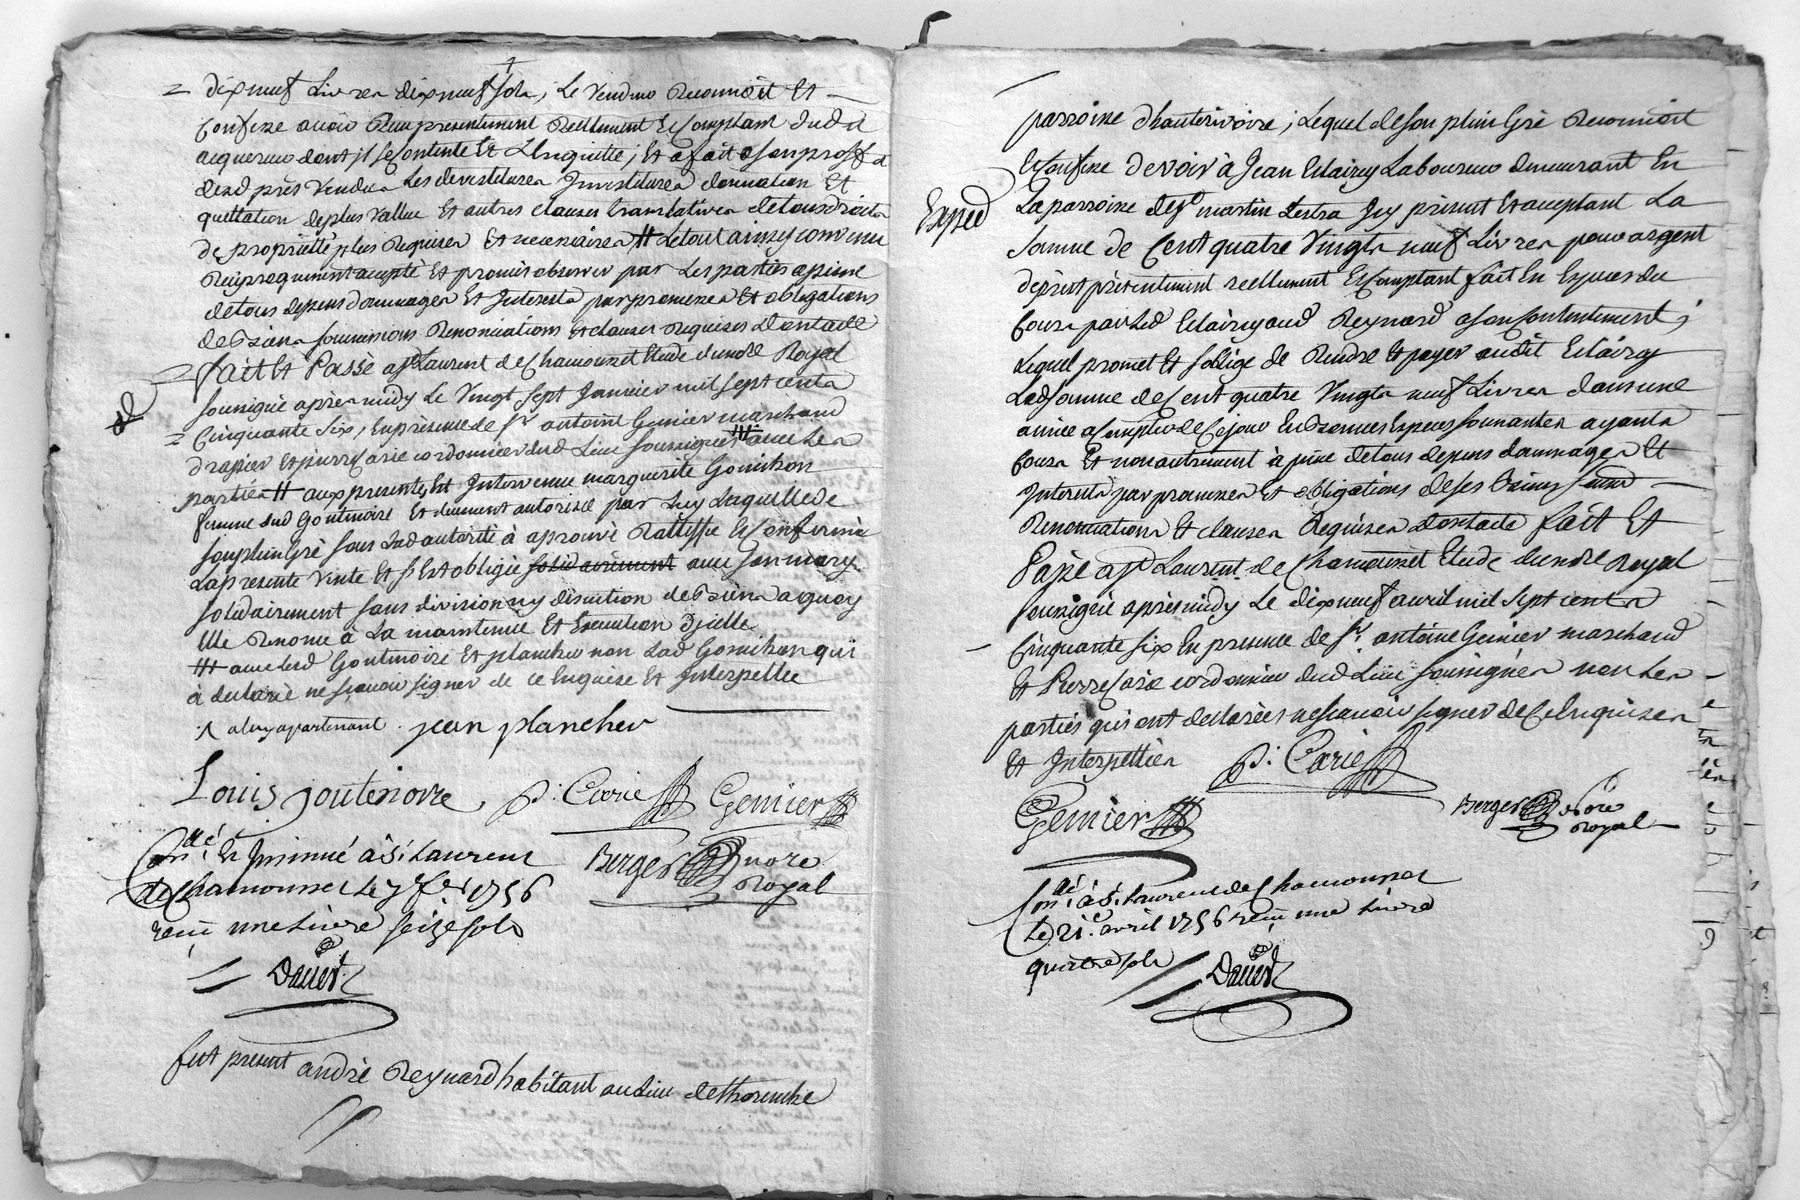 dixneuf Livres dixneuf sols, Le Vendeur Reconnoit Et
Confesse avoir Reçu presentement Reellement Et Comptant dudit
acquereur dont il se contente Et L'Enquitte, Et a fait a son proffit
desd près Vendus Les devestitures Investitures donnation Et
quittation de plus Vallue Et autres clauses translatives de tous droits
de proprietté plus Requises Et necessaires # Le tout ainsy convenu
Reciproquement accepté Et promis observer par Les parties a peine
de tous depens dommages Et Interests par promesses Et obligations
de Biens soumissions Renonciations Et clauses requises Dont acte
fait Et Passé a St Laurent de Chamousset Etude du nore Royal
soussigné après midy Le Vingt sept Janvier mil sept cents
Cinquante Six, En presence de Sr antoine Genier marchand
drapier Et pierre Carie cordonnier dud Lieu soussignés # avec Les
parties # aux presentes Est Intervenue marguerite Gonichon
femme dud Goutenoire Et deument autorisée par Luy Laquelle de
son plein Gré sous Lad autorité à aprouvé Rattiffié Et Confirmé
La presente Vente Et s'Est obligée solidairement avec son mary
solidairement sans division ny discution de Biens a quoy
Elle Renonce à La maintenue Et Execution D'icelle
# avec Led Goutenoire Et plancher non Lad Gonichon qui
à declaré ne sçavoir signer de ce Enquise Et Interpellée
a luy apartenant . jean plancher
Louis goutenoire P: Carie Genier
Conlé Et Insinué à St Laurent Berger nore
de Chamousset Le 7e fer 1756 Royal
reçu une Livre seize sols
David
fut present andré Reynard habitant au Lieu de
parroisse d'hauterivoire, Lequel de son plein Gré Reconnoit
Et Confesse devoir à Jean Eclairey Laboureur demeurant En
Exped
La parroisse de St martin Lestra Icy présent Et acceptant La
somme de Cent quatre Vingts neuf Livres pour argent
de prêt présentement reellement Et Comptant fait En Espèces du
Cours par Led Eclairey aud Reynard a son Contentement,
Lequel promet Et s'oblige de Rendre Et payer audit Eclairey
Lad somme de Cent quatre Vingts neuf Livres dans une
année a Compter de Ce jour En Bonnes Especes sonnantes ayants
Cours Et non autrement à peine de tous depens dommages Et
Interests par promesses Et obligations de ses Biens
Renonciations Et clauses Requises Dont acte fait Et
Passé a St Laurent de Chamousset Etude du nore Royal
soussigné après midy Le dix neuf avril mil sept cents
Cinquante six En presence de Sr. antoine Genier marchand
Et Pierre Carie cordonnier dud Lieu soussignés non Les
parties qui ont declarées ne sçavoir signer de Ce Enquises
Et Interpellées P: Carie
Genier Berger nore
Royal
Conlé à St Laurent de Chamousset
Le 21e avril 1756 reçu une Livre
quatre sols David